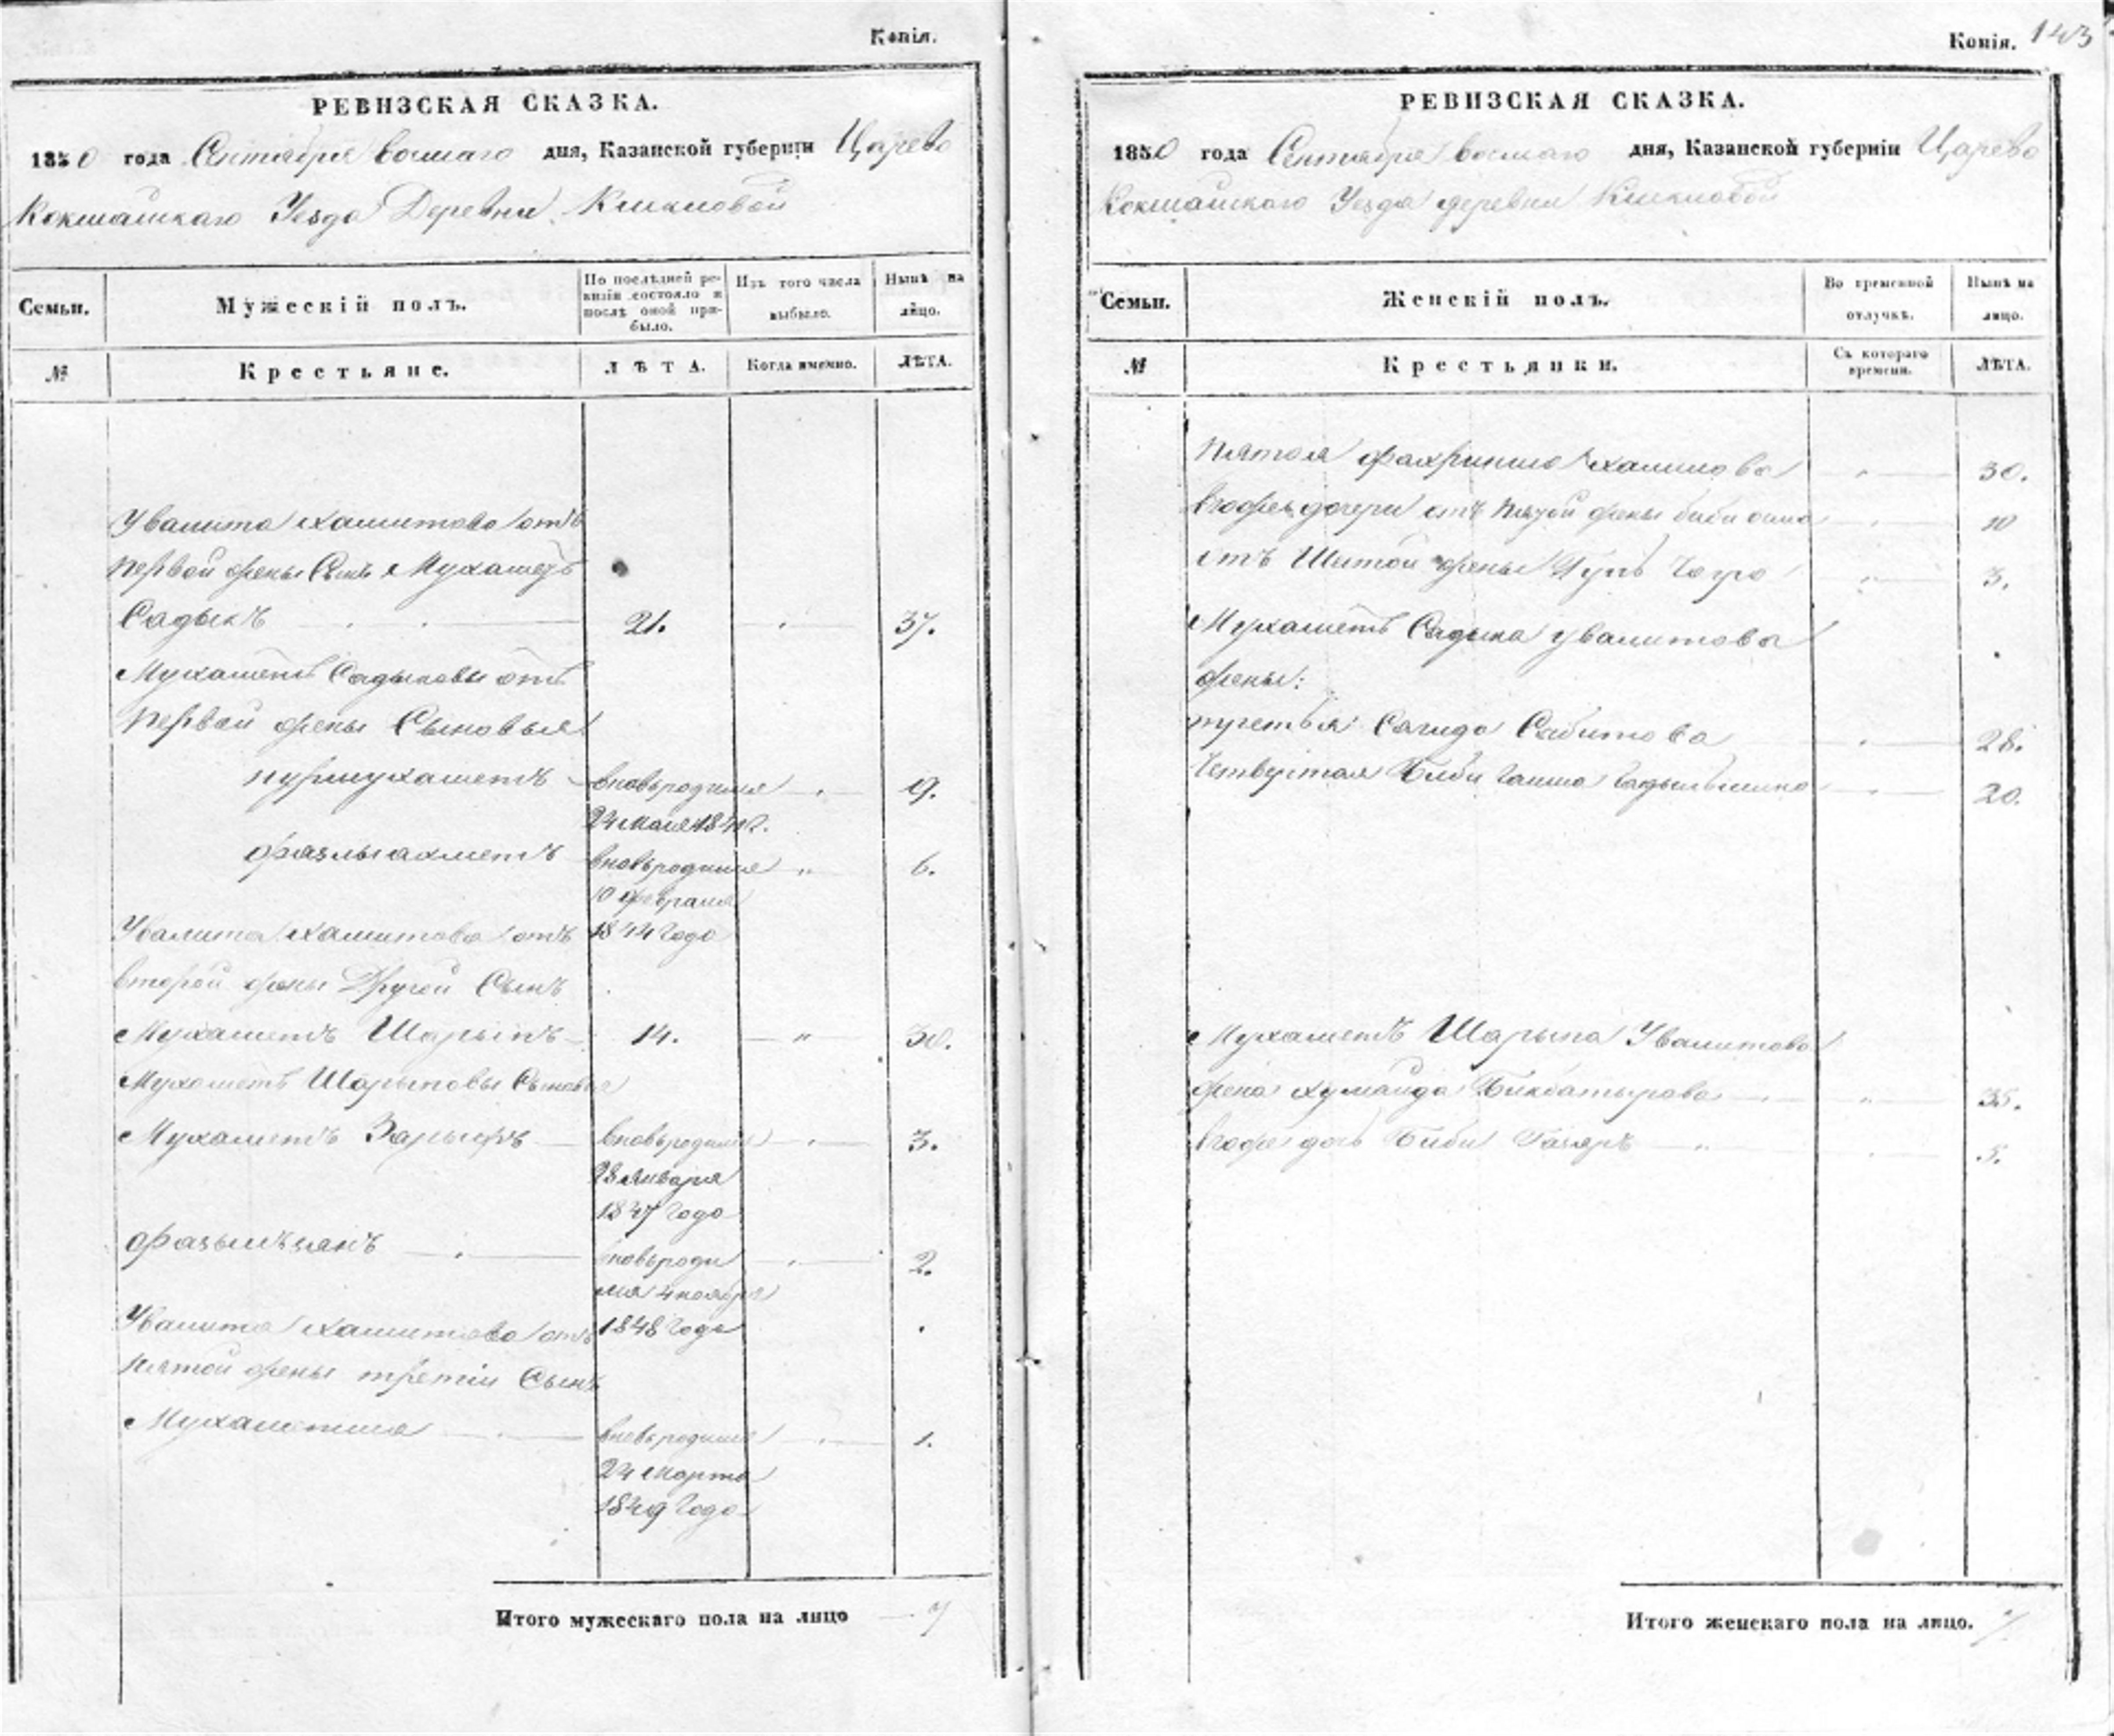 Копія.
РЕВИЗСКАЯ СКАЗКА.
1850 года Сентября восмаго дня, Казанской губерніи Царево
Кокшайскаго Уезда Деревни
Семьи.
Мужескій полъ.
По послѣдней ре-
визіи состояло и
послѣ оной при-
было.
Изъ того числа
выбыло.
Нынѣ на
лицо.
№
Крестьяне.
ЛѢТА.
Когда именно.
ЛѢТА.
Увалита Хамитова отъ
первой жены Сынъ Мухаметъ
Садыкъ 21. 37.
Мухаметъ Садыковы отъ
первой жены Сыновья
нурмухаметъ вновьродился 9.
24 мая 1841 г.
фазлыахметъ вновьродился 6.
10 февраля
Увалита Хамитова отъ 1844 года
второй жены Другой Сынъ
Мухаметъ Шарыпъ 14. 30.
Мухаметъ Шарыповы Сыновья
Мухаметъ Зарыфъ вновьродился 3.
28 Января
1847 года
вновьроди 2.
лся 4 ноября
Увалита Хамитова отъ 1848 года
пятой жены третіи Сынъ
вновьродился 1.
24 Марта
1849 Года
Итого мужескаго пола на лицо 7
Копія. 143
РЕВИЗСКАЯ СКАЗКА.
1850 года Сентября восмаго дня, Казанской губерніи Царево
Кокшайскаго Уезда деревни
Семьи.
Женскій полъ.
Во временной
отлучкѣ.
Нынѣ на
лицо.
№
Крестьянки.
Съ котораго
времени.
ЛѢТА.
Пятая 30.
дочери отъ пятой жены биби 10
отъ жены Гуль 3.
Мухаметъ Садыка Увалитова
жены:
третья Сагида Сабитова 28.
Четвертая Биби 20.
Мухаметъ Шарыпа Увалитова
жена Хумаида Бикбатырова 35.
дочь Биби 5.
Итого женскаго пола на лицо. 7